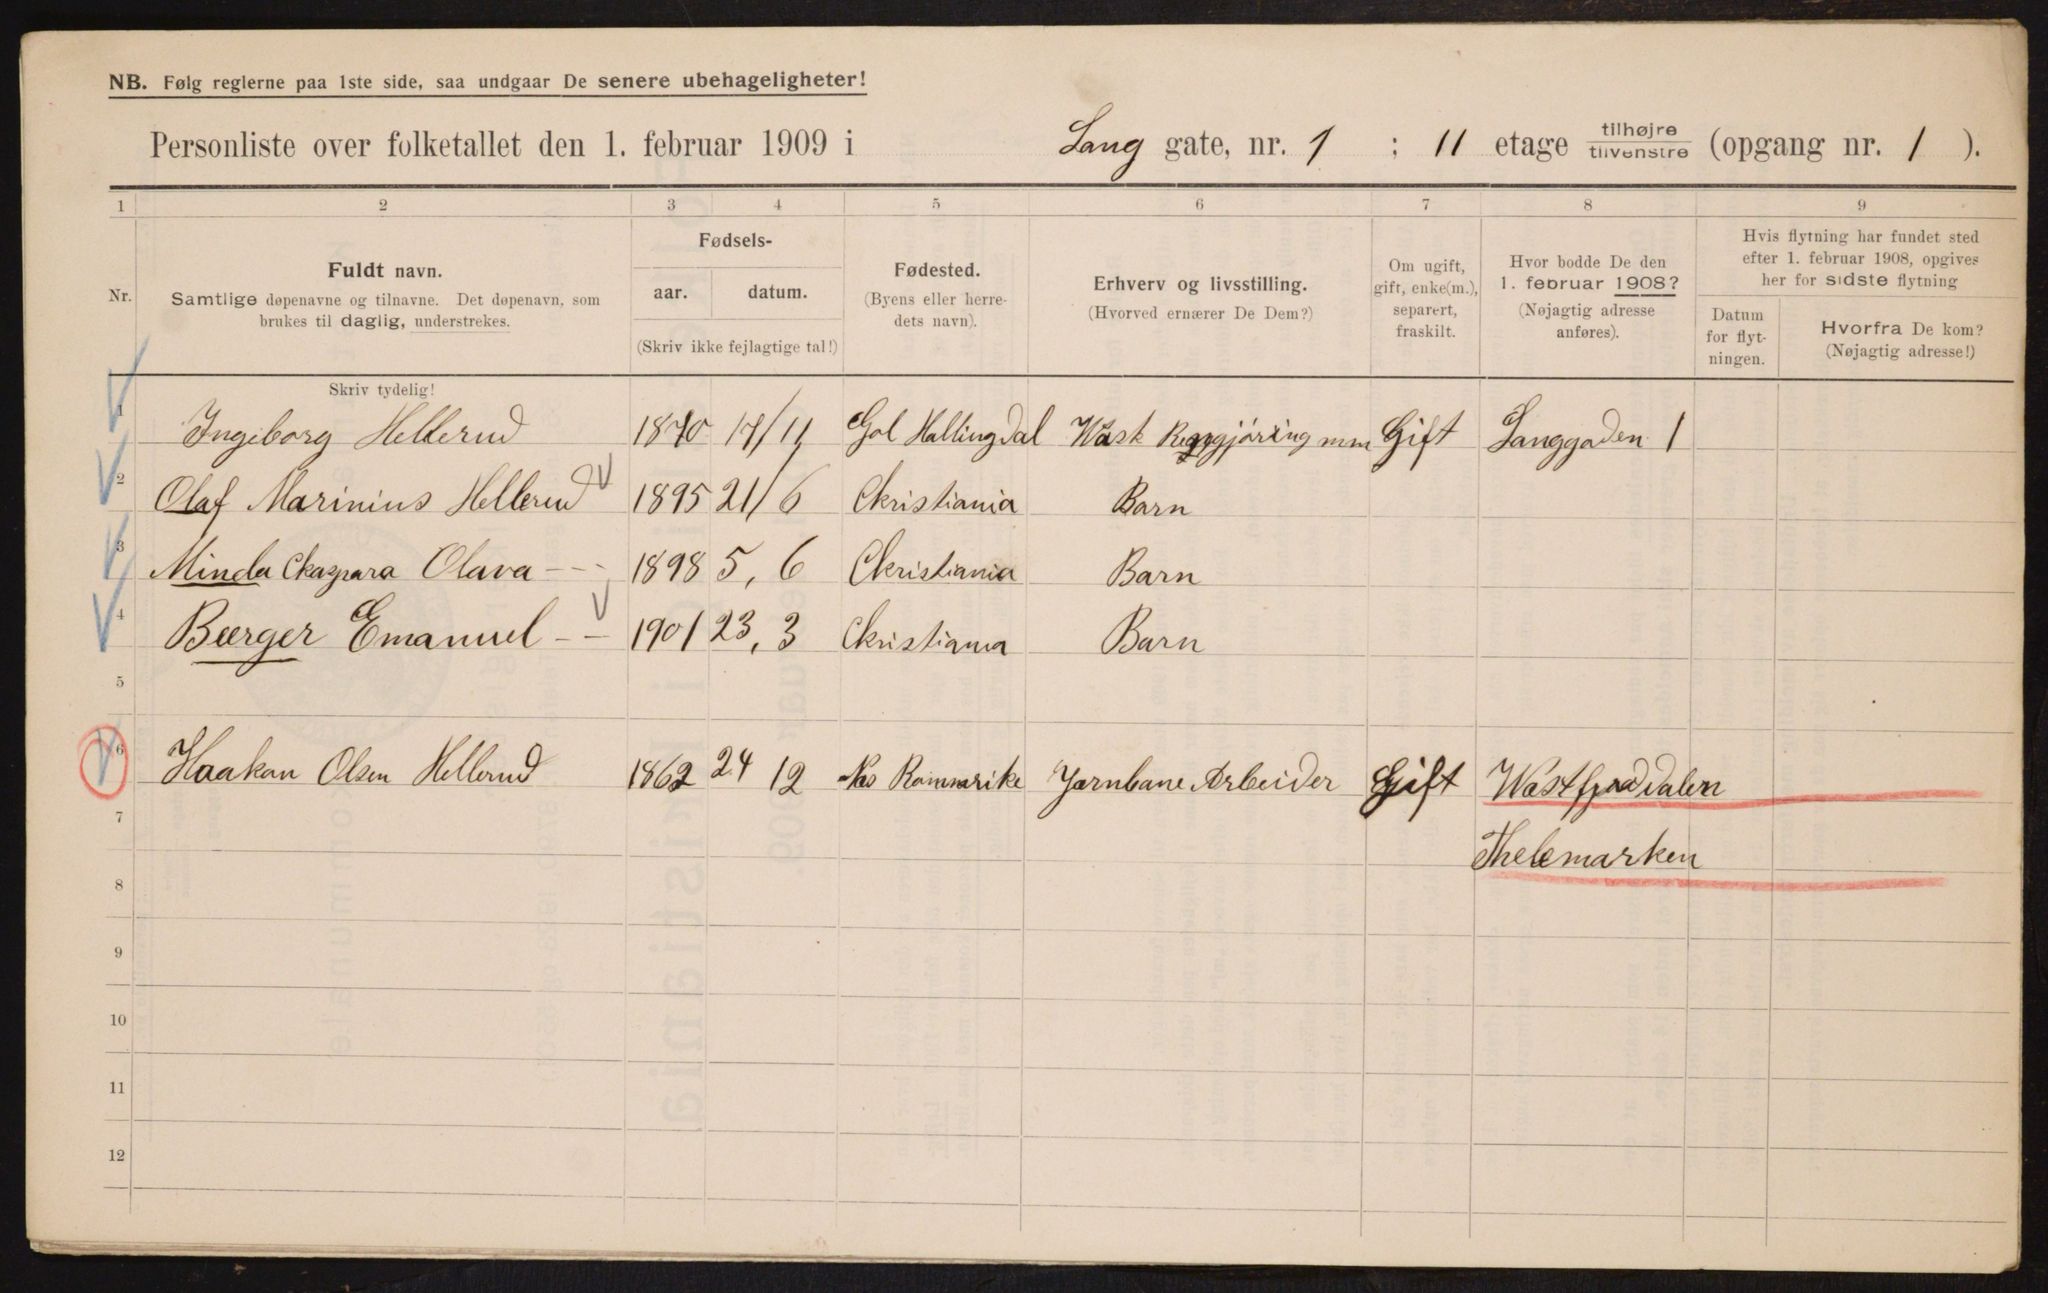 NB. Følg reglerne paa 1ste side, saa undgaar De senere ubehageligheter!
Personliste over folketallet den 1. februar 1909 i Lang gate, nr. 1 ; 11 etage tilhøjre/tilvenstre (opgang nr. 1 ).
1 2 3 4 5 6 7 8 9
Nr.
Fuldt navn.
Samtlige døpenavne og tilnavne. Det døpenavn, som
brukes til daglig, understrekes.
Fødsels-
aar. datum.
(Skriv ikke fejlagtige tal!)
Fødested.
(Byens eller herre-
dets navn).
Erhverv og livsstilling.
(Hvorved ernærer De Dem?)
Om ugift,
gift, enke(m.),
separert,
fraskilt.
Hvor bodde De den
1. februar 1908?
(Nøjagtig adresse
anføres).
Hvis flytning har fundet sted
efter 1. februar 1908, opgives
her for sidste flytning
Datum
for flyt-
ningen.
Hvorfra De kom?
(Nøjagtig adresse!)
Skriv tydelig!
1 Ingeborg Hellerud 1870 17/11 Gol Hallingdal Wask Regngjöring mm Gift Langgaden 1
2 Olaf Marinius Hellerud 1895 21/6 Ckristiania Barn
3 Minda Ckaspara Olava - - - 1898 5, 6 Ckristiania Barn
4 Bærger Emanuel - - 1901 23, 3 Ckristiania Barn
5
6 Haakon Olsen Hellerud 1862 24 12 Nes Romerike Jarnbane Arbeider Gift Wastfjorddalen
7 Thelemarken
8
9
10
11
12